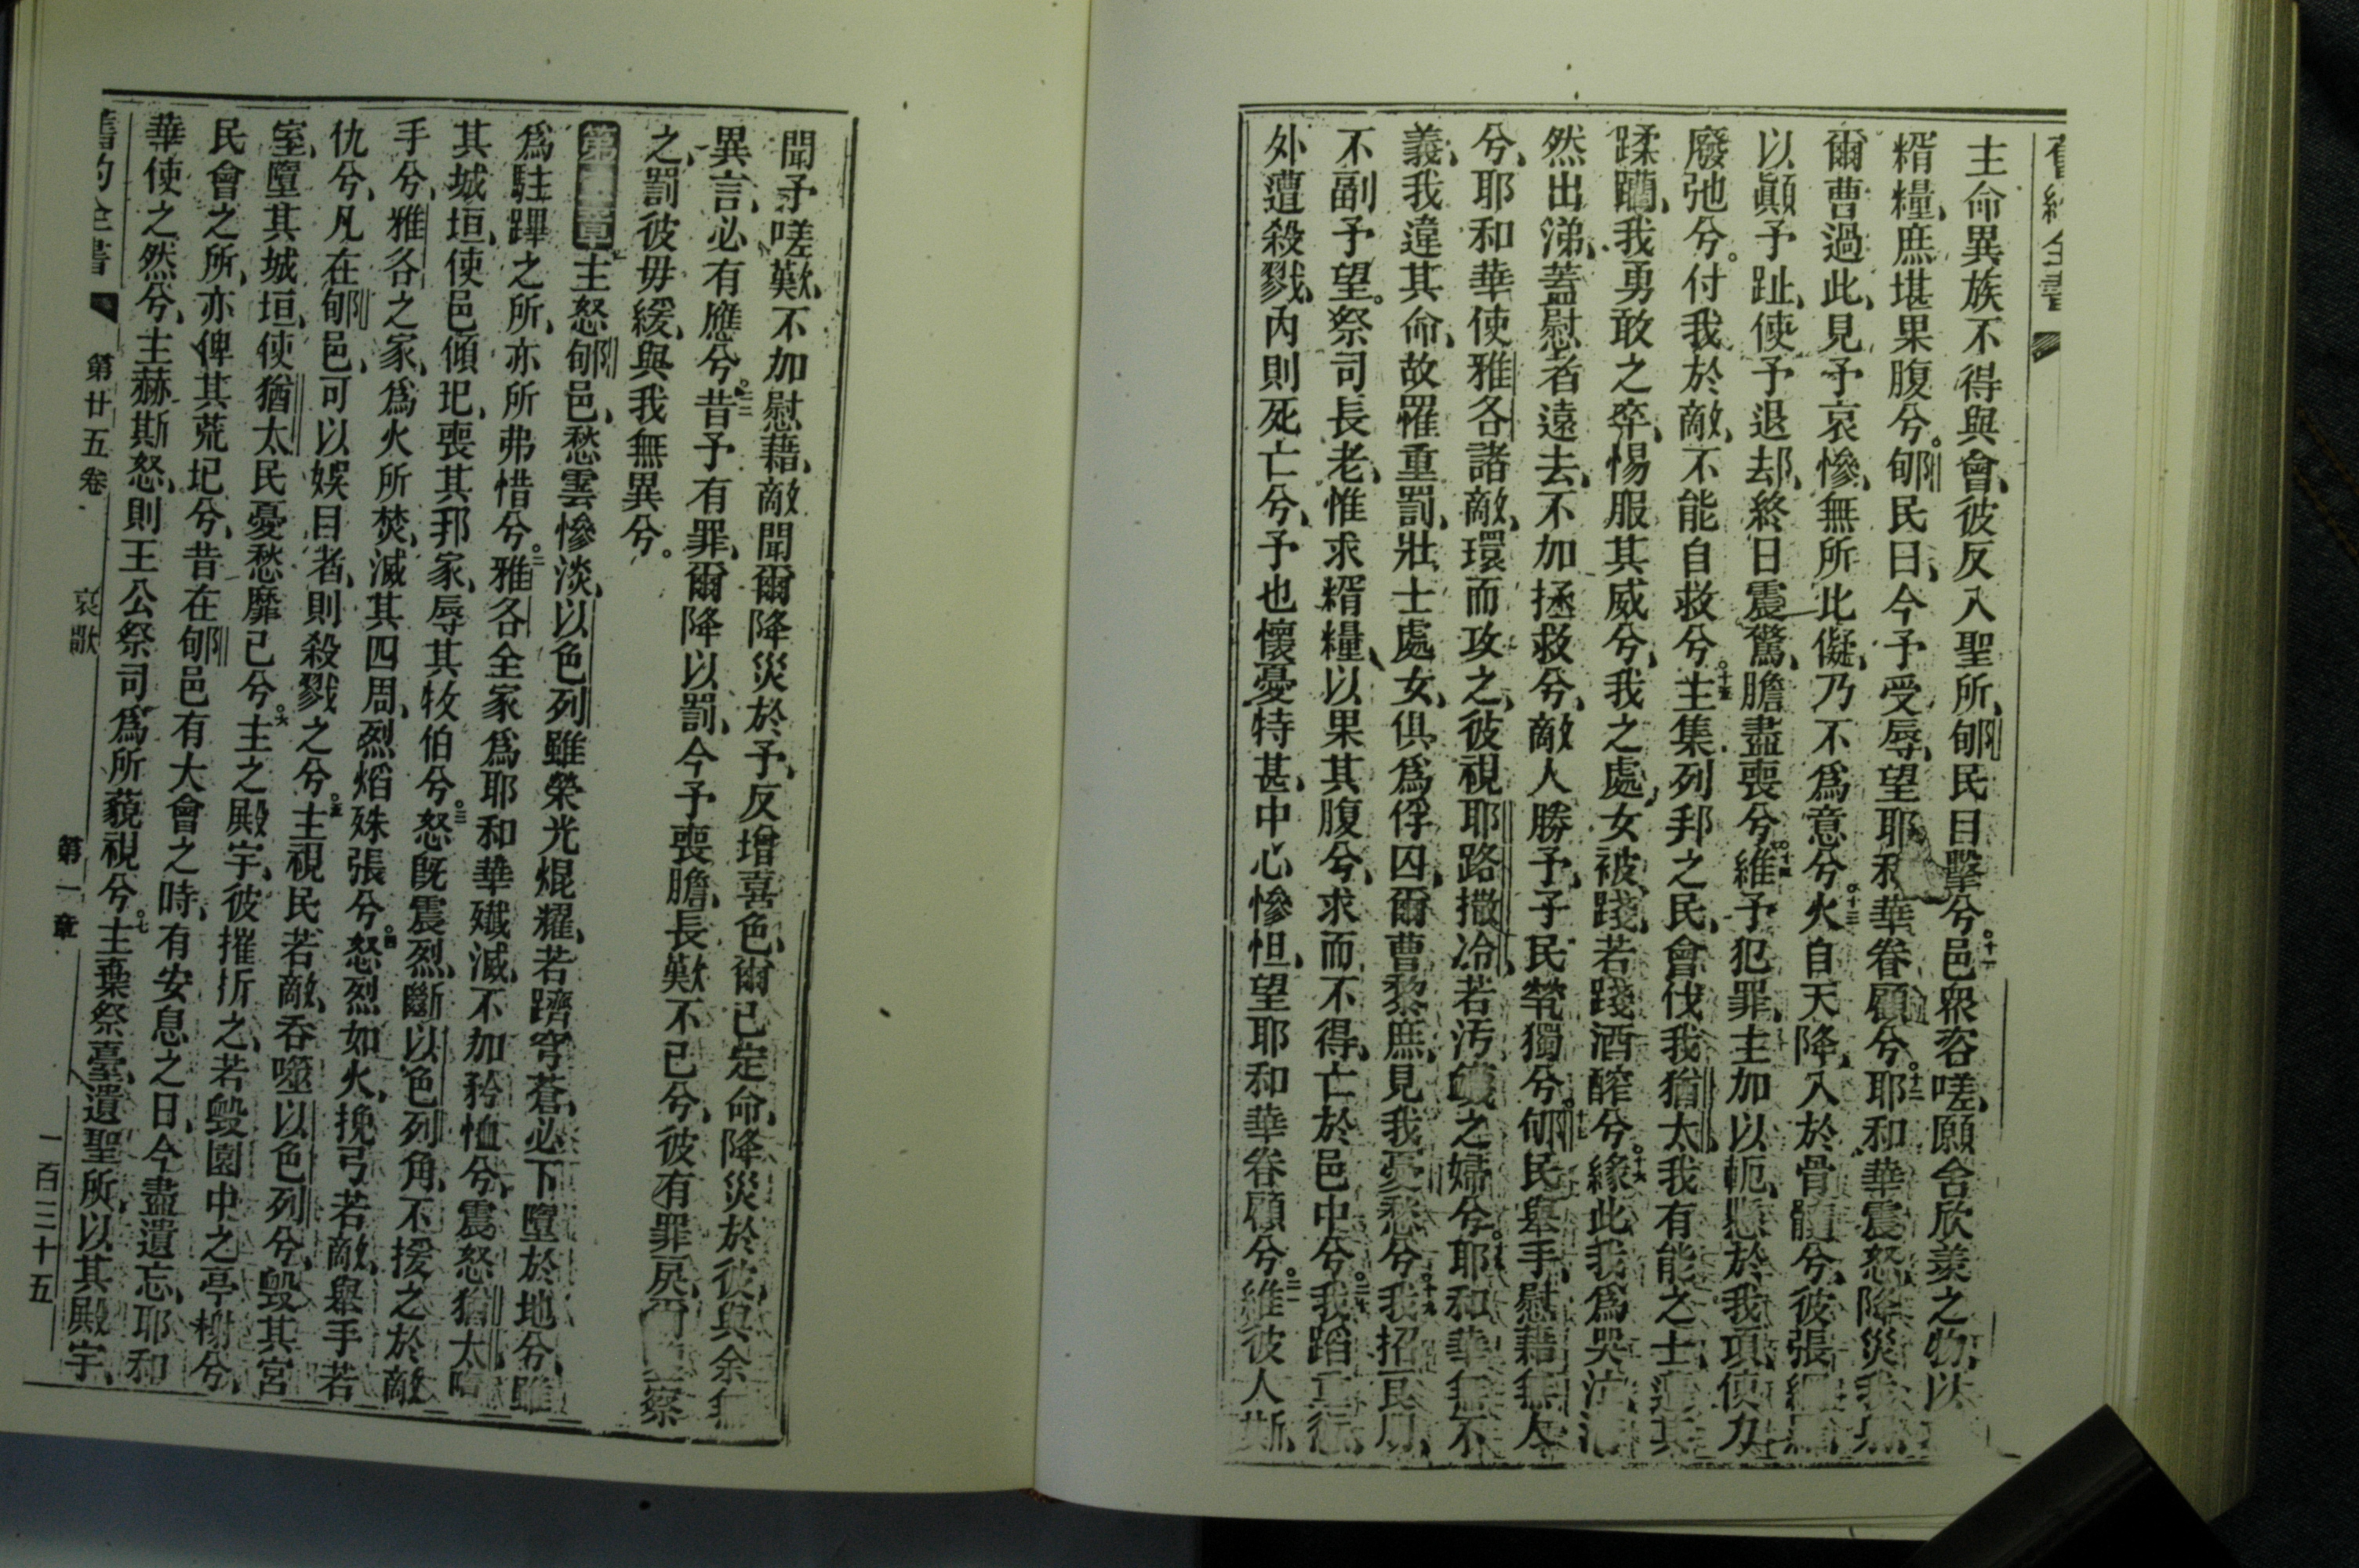 舊約全書
主命異族不得與會、彼反入聖所、郇民目擊兮。十一邑眾咨嗟、願舍欣羨之物、以
糈糧、庶堪果腹兮。郇民曰、今予受辱、望耶和華眷顧兮。十二耶和華震怒、降災我
爾曹過此、見予哀慘、無所比儗、乃不爲意兮。十三火自天降、入於骨髓兮、彼張
以顚予趾、使予退却、終日震驚、膽盡喪兮。十四維予犯罪、主加以軛、懸於我項、使力
廢弛兮。付我於敵、不能自救兮。十五主集列邦之民、會伐我猶太、我有能之士、遇其
蹂躪、我勇敢之卒、惕服其威兮、我之處女被踐、若踐酒醡兮。十六緣此我爲哭泣
然出涕、蓋慰者遠去、不加拯救兮、敵人勝予、予民煢獨兮。十七郇民舉手、慰藉無人
兮、耶和華使雅各諸敵、環而攻之、彼視耶路撒冷、若汚衊之婦兮。耶和華無不
義、我違其命、故罹重罰、壯士處女、俱爲俘囚、爾曹黎庶、見我憂愁兮。十九我招民朋、
不副予望。祭司長老、惟求糈糧、以果其腹兮、求而不得、亡於邑中兮。二十我蹈重
外遭殺戮、內則死亡兮、予也懷憂特甚、中心慘怛、望耶和華眷顧兮。二一維彼人斯、
聞予嗟歎、不加慰藉、敵聞爾降災於予、反增喜色、爾已定命、降災於彼、與余無
異言、必有應兮。二二昔予有罪、爾降以罰、今予喪膽、長歎不已兮、彼有罪戾、察
之、罰彼毋緩、與我無異兮。
第二章主怒郇邑、愁雲慘淡、以色列雖榮光焜耀、若躋穹蒼、必下墮於地兮、雖
爲駐蹕之所、亦所弗惜兮。二雅各全家、爲耶和華殲滅、不加矜恤兮、震怒猶太、
其城垣、使邑傾圯、喪其邦家、辱其牧伯兮。三怒既震烈、斷以色列角、不援之於敵
手兮、雅各之家、爲火所焚、滅其四周、烈焰殊張兮。四怒烈如火、挽弓若敵、舉手若
仇兮、凡在郇邑、可以娛目者、則殺戮之兮。五主視民若敵、吞噬以色列兮、毀其宮
室、墮其城垣、使猶太民憂愁靡已兮。六主之殿宇、彼摧折之、若毀園中之亭榭兮、
民會之所、亦俾其荒圯兮、昔在郇邑有大會之時、有安息之日、今盡遺忘、耶和
華使之然兮、主赫斯怒、則王公祭司爲所藐視兮。七主棄祭臺、遺聖所、以其殿宇、
舊約全書 第廿五卷 哀歌 第一章 一百三十五